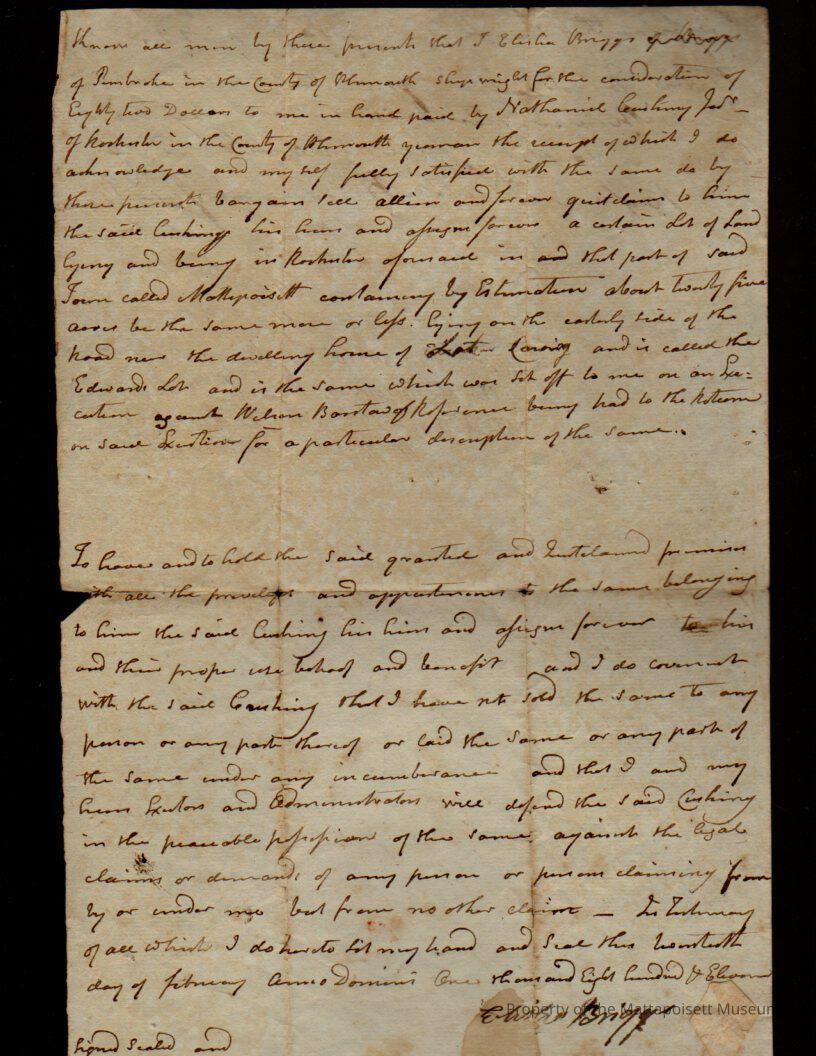 Know all men by these presents that I Elisha Briggs
of Pembroke in the County of Plymouth shipwright for the consideration of
Eighty two Dollars to me in hand paid by Nathaniel Cushing Jadr
of Rochester in the County of Plymouth yeoman the receipt of which I do
acknowledge and myself fully satisfied with the same do by
these presents bargain sell allien and forever quitclaim to him
the said Cushing his heirs and assigns forever a certain Lot of Land
lying and being in Rochester aforesaid in and that part of said
Town called Mattepoisett containing by Estimation about twenty five
acres be the same more or less. lying on the easterly side of the
Road near the dwelling house of and is called the
Edwards Lot and is the same which was Sit off to me on an Exe=
cution against Wilson Barstow Reference being had to the Return
on said Exection for a particular description of the same..
To have and to hold the said granted and Quitclaimed premises
with all the priveleges and appurtenances to the same belonging
to him the said Cushing his heirs and assigns forever to his
and their proper use behoof and benefit and I do covenant
with the said Cushing that I have not sold the same to any
person or any part thereof or laid the same or any part of
the same under any incumberance and that I and my
heirs Exectors and Administrators will defend the said Cushing
in the peaceable possession of the same against the legal
claims or demands of any person or persons claiming from
by or under me but from no other claims — In Testimony
of all which I do hereto Sit my hand and Seal this twentieth
day of febuary Anno Domini One thousand Eight hundred & Eleven
Elisha Briggs
Property of the Mattapoisett Museum
Signed Sealed and